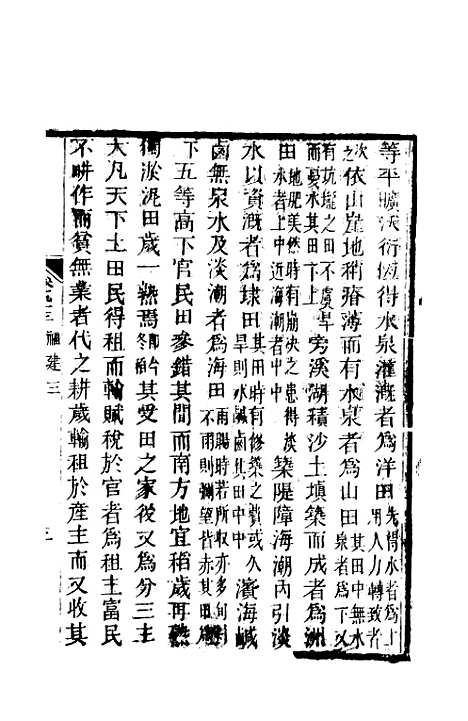 等平曠沃衍揠得水泉灌溉者爲洋田先得水者爲上用人力轉致者
次之依山崖地稍瘠薄而有水泉者爲山田其田中無水泉者爲下又
有坑壠之田不虞旱而要水其田下上旁溪湖積沙土填築而成者爲洲
田地肥美然時有崩決之患得淡水者上中近海潮者中中築隄障海潮內引淡
水以資溉者爲埭田其田時有修築之費或久旱則水鹹鹵其田中中濱海鹹
鹵無泉水及淡潮者爲海田雨暘時若所收亦多旬不雨則彌望皆赤其田
下五等高下官民田參錯其間而南方地宜稻歲再熟
獨淤泥田歲一熟焉其受田之家後又爲分三主
大凡天下土田民得租而輸賦稅於官者爲租主富民
不耕作而貧無業者代之耕歲輸租於產主而又收其
福建三
三